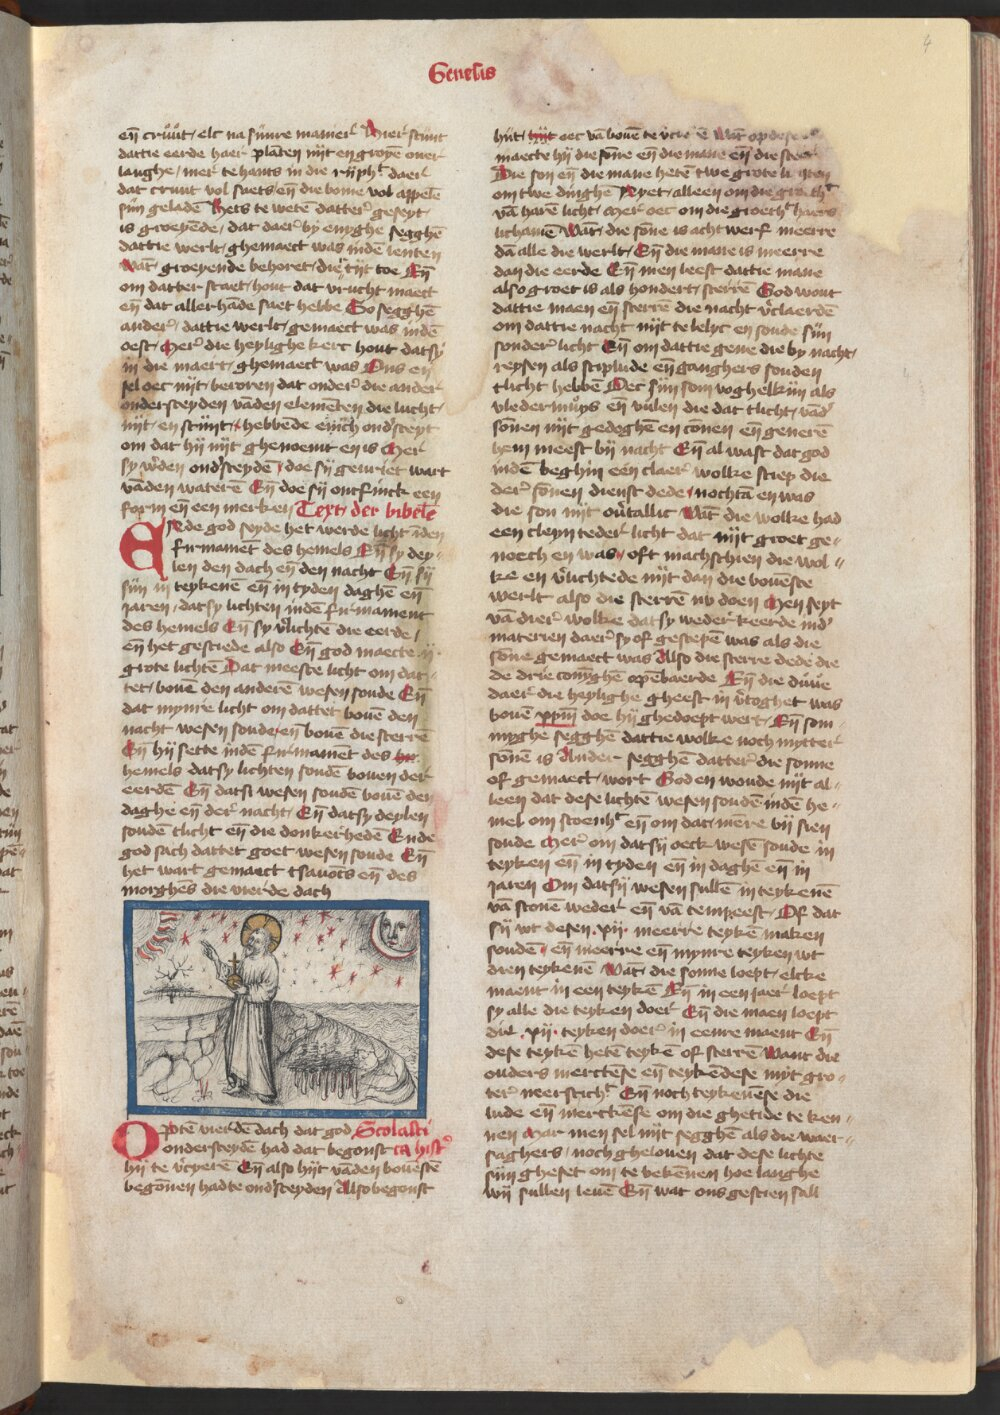 Genesis
4
eñ cruut / elc na sijnre manier Hier stunt
dattie eerde haer planten nijt en groyē over
laughe / mer te hants in die rijpht daer
dat cruut vol saets eñ die bome vol appelē
sijn geladē Hets te wetē datter geseyt
is groeyēde / dat daer by enyghe segghē
dattie werlt / ghemaect was indē lenten
Wāt groeyende behoret die tijt toe Eñ
om datter staet / hout dat vrucht maect
eñ dat allerhāde saet hebbe So segghē
ander / dattie werlt / gemaect was indē
oest / Mer die heylighe kerc hout datsy
in die maert / ghemaect was Ons en
sel oec nijt / beroren dat onder die ander
ondersceyden vāden elemēten die lucht /
nijt / en stunt / hebbede enich ondsceyt
om dat hij nijt ghenoemt en is Mer
sy wden ondsceydē / doe sij geuriet wart
vāden waterē Eñ doe sij ontfinck een
form eñ een merken Text der bibelē
Ende god seyde het werde licht īden
firmamēt des hemels Eñ sy dey-
len den dach eñ den nacht Eñ sij
sijn in teykenē eñ in tyden daghē eñ
jaren / datsy lichten indē firmament
des hemels Eñ sy vlichtē die eerde /
eñ het gestiede also Eñ god maecte ij
grote lichtē Dat meeste licht om dat-
tet / bouē den anderē wesen soude Eñ
dat mynre licht om dattet bouē den
nacht wesen soude / eñ bouē die sterrē
Eñ hij sette indē firmamēt des he
hemels datsy lichten soudē bouen der
eerdē Eñ datsi wesen soudē bouē den
daghe eñ der nacht / Eñ datsy deylen
soudē tlicht eñ die donkerhedē Ende
god sach dattet goet wesen soude Eñ
het wart gemaect tsauots eñ des
morghēs die vierde dach
Optē vierdē dach dat god Scolasti
ondersceydē had dat begonst ca hist
hij te vcyerē Eñ also hijt vādē bouestē
begōnen hadte ondsceyden Also begonst
hijt / hijt oec vā bouē te vcierē Wāt op dese
maecte hij die sōne eñ die mane eñ die ster
Die son eñ die mane hetē twe grote lichten
om twe dinghē Nyet / alleen om die groth
vā harē licht / Mer oec om die groeth haers
lichamē Wāt / die sōne is acht werf meerre
dā alle die werlt / Eñ die mane is meerre
dan die eerde Eñ men leest dattie mane
also groet is als hondert / sterrē God wout
dattie maen eñ sterrē die nacht vclaerdē
om dattie nacht nijt te lelyc en soude sijn
sonder licht Eñ om dattie gene die by nacht /
reysen als sciplude eñ ganghers souden
tlicht hebbē Oec sijn som voghelkijn als
vledermuys eñ vulen die dat tlicht / vād
sōnen nijt gedoghē en conen eñ generē
hem meest bij nacht Eñ al wast dat god
indē beghin een claer wolke sciep die
der sōnen dienst dede / nochtā en was
die son nijt ovtallic Wāt die wolke had
een cleyn teder licht dat nijt groet ge-
noech en was / oft machschien die wol-
ke en vlichtede nijt dan die bouēste
werlt also die sterrē nv doen Men seyt
vā dier wolke datsy weder keerde ind
materien daer sy of gescepē was als die
sōne gemaect was Also die sterre dede die
de drie coninghē opēbaerde Eñ die duue
daer die heylighe gheest in vtoghet was
bouē xpm doe hij ghedoept wert / Eñ som-
myghe segghē dattie wolke noch mytter
sōnē is Ander segghē datter die sonne
of gemaect / wort God en woude nijt al-
leen dat dese lichtē wesen soudē indē he-
mel om scoenht eñ om dat / mēre bij sien
soude Mer om datsij oeck wesē soude in
teyken eñ in tyden eñ in daghē eñ in
jaren Om datsij wesen sullē in teykenē
vā scouē weder eñ vā tempeest / Of dat
sij wt desen xij meerre teykē maken
soudē / eñ meerre eñ mynre teyken wt
dien teykenē Wāt / die sonne loept / elcke
maent in een teykē Eñ in een jaer loept
sy alle die teyken doer Eñ die maen loept
die xij teyken doer in eenre maent Eñ
dese teykē hetē teykē of sterrē Want die
ouders merctese eñ teykēdese mijt gro-
ter neersticht Eñ noch teykenēse die
lude eñ merctēse om die ghetide te ken-
nen Mar men sel nijt segghē als die waer-
saghers / noch ghelouen dat dese lichte
sijn gheset om te bekēnen hoe langhe
wij sullen leuē Eñ wat ons gescien sall